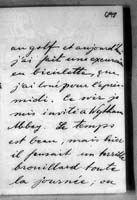 au golf et aujourd'h
j'ai fait une excursion
en bicyclette, que
j'ai loué pour l'après-
midi. Ce soir je
suis invité à Wytham
Abbey. Le temps
est beau, mais hier
il faisait un terrible
brouillard toute
la journée; on